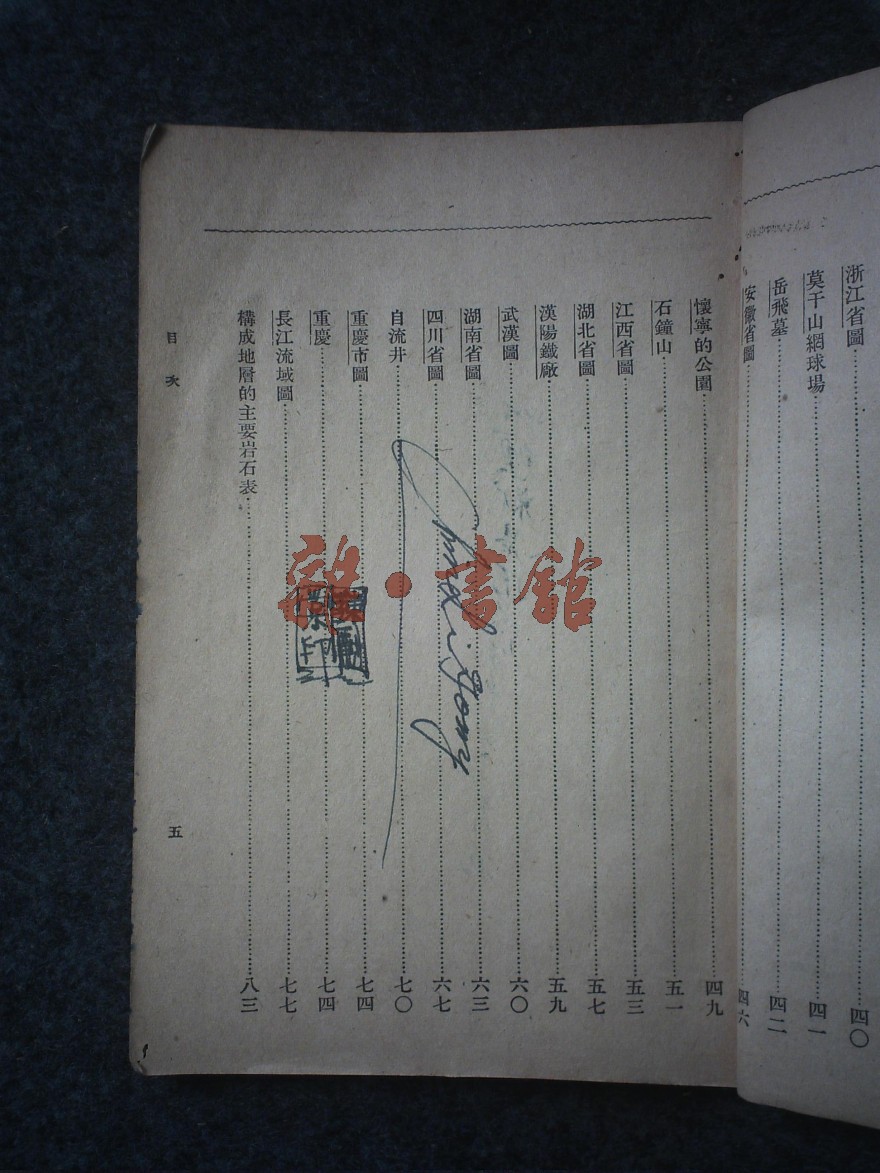 浙江省圖……四〇
莫干山網球場……四一
岳飛墓……四二
安徽省圖……四六
懷寧的公園……四九
石鐘山……五一
江西省圖……五三
湖北省圖……五七
漢陽鐵廠……五九
武漢圖……六〇
湖南省圖……六三
四川省圖……六七
自流井……七〇
重慶市圖……七四
重慶……七四
長江流域圖……七七
構成地層的主要岩石表……八三
目次
五
雜·書館